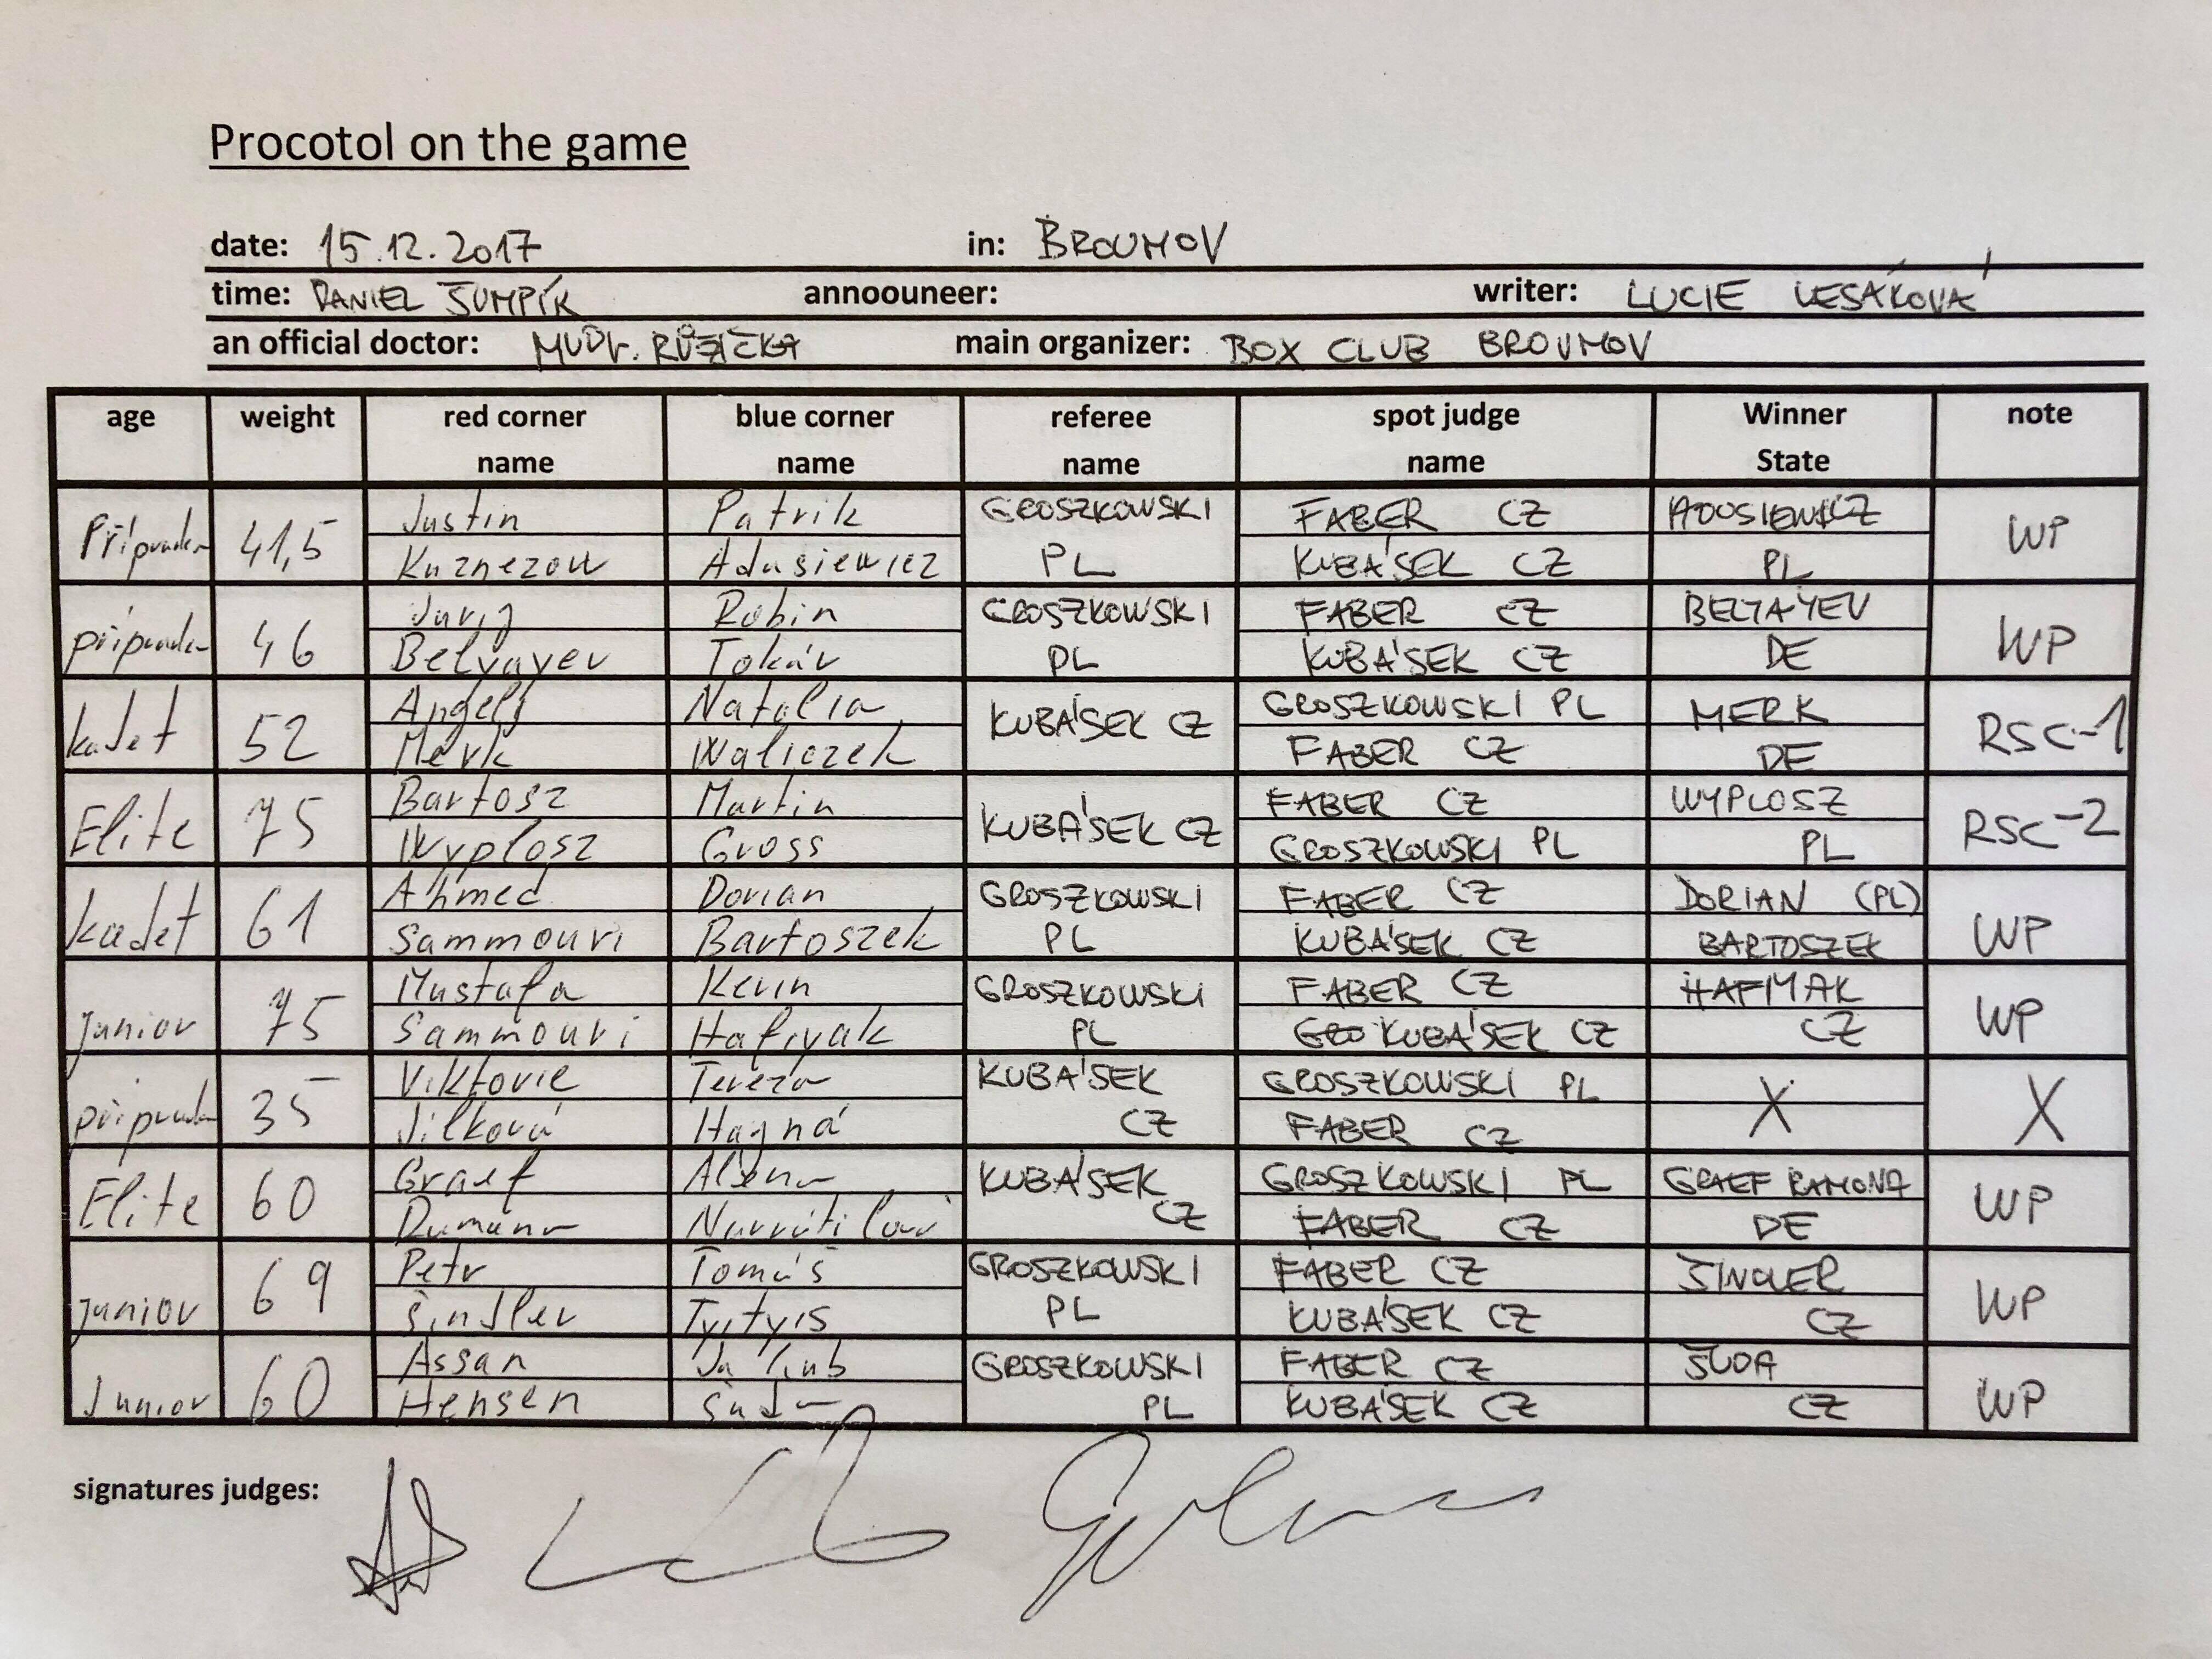 Procotol on the game
date: 15.12.2017 in: BROUMOV
time: DANIEL ŠUMPÍK annoouneer: writer: LUCIE LESÁKOVÁ
an official doctor: MUDr. RŮŽIČKA main organizer: BOX CLUB BROUMOV
age weight red corner blue corner referee spot judge Winner note
name name name name State
Justin Patrik GROSZKOWSKI FABER CZ
41,5 WP
Kuznezow Adusiewicz PL KUBÁSEK CZ PL
Jurij Robin GROSZKOWSKI FABER CZ BELYAYEV
46 WP
Belyayev Tokár PL KUBÁSEK CZ DE
Natalia GROSZKOWSKI PL MERK
kadet 52 KUBÁSEK CZ RSC-1
Merk Waliczek FABER CZ DE
Bartosz Martin FABER CZ WYPLOSZ
Elite 75 KUBÁSEK CZ RSC-2
Wyplosz Gross GROSZKOWSKI PL PL
Ahmed Dorian GROSZKOWSKI FABER CZ DORIAN (PL)
kadet 61 WP
Sammouri Bartoszek PL KUBÁSEK CZ BARTOSZEK
Mustafa Kevin GROSZKOWSKI FABER CZ
junior 75 WP
Sammouri PL GRO KUBÁSEK CZ CZ
Viktorie Tereza KUBÁSEK GROSZKOWSKI PL
35 X X
Jílková Hagná CZ FABER CZ
Graef KUBÁSEK GROSZKOWSKI PL GRAEF RAMONA
Elite 60 WP
CZ FABER CZ DE
Petr Tomáš GROSZKOWSKI FABER CZ ŠINDLER
junior 69 WP
Šindler Tyrtyis PL KUBÁSEK CZ CZ
Assan Jakub GROSZKOWSKI FABER CZ ŠUDA
Junior 60 WP
Hensen Šuda PL KUBÁSEK CZ CZ
signatures judges: